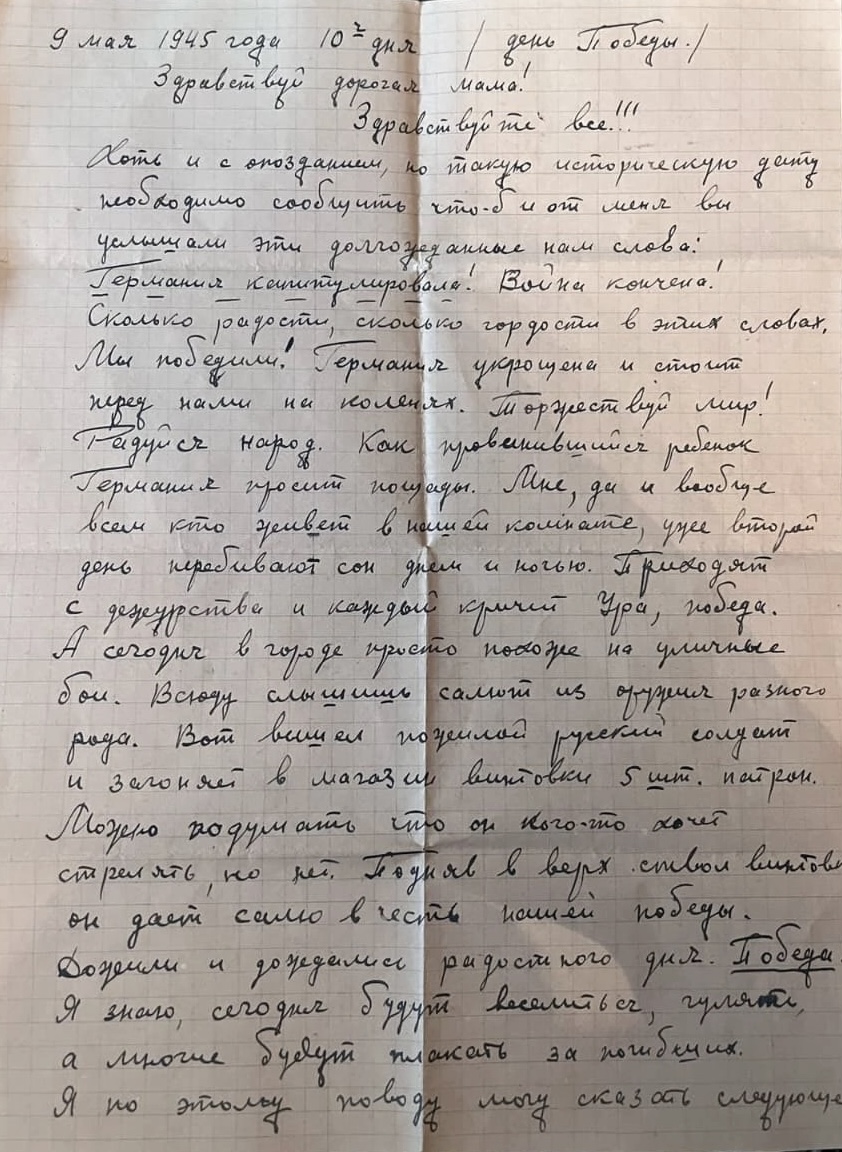 9 мая 1945 года 10ч дня / день Победы./
Здравствуй дорогая мама!
Здравствуйте все!!!
Хоть и с опозданием, но такую историческую дату
необходимо сообщить что-б и от меня вы
услышали эти долгожданные нам слова:
Германия капитулировала! Война кончена!
Сколько радости, сколько гордости в этих словах,
Мы победили! Германия укрощена и стоит
перед нами на коленях. Торжествуй мир!
Радуйся народ. Как провинившийся ребенок
Германия просит пощады. Мне, да и вообще
всем кто живет в нашей комнате, уже второй
день перебивают сон днем и ночью. Приходят
с дежурства и каждый кричит Ура, победа.
А сегодня в городе просто похоже на уличные
бои. Всюду слышишь салют из оружия разного
рода. Вот вышел пожилой русский солдат
и загоняет в магазин винтовки 5 шт. патрон.
Можно подумать что он кого-то хочет
стрелять, но нет. Подняв в верх ствол винтовк
он дает салю в честь нашей победы.
Дожили и дождались радостного дня. Победа.
Я знаю, сегодня будут веселиться, гулять,
а многие будут плакать за погибших.
Я по этому поводу могу сказать следующе